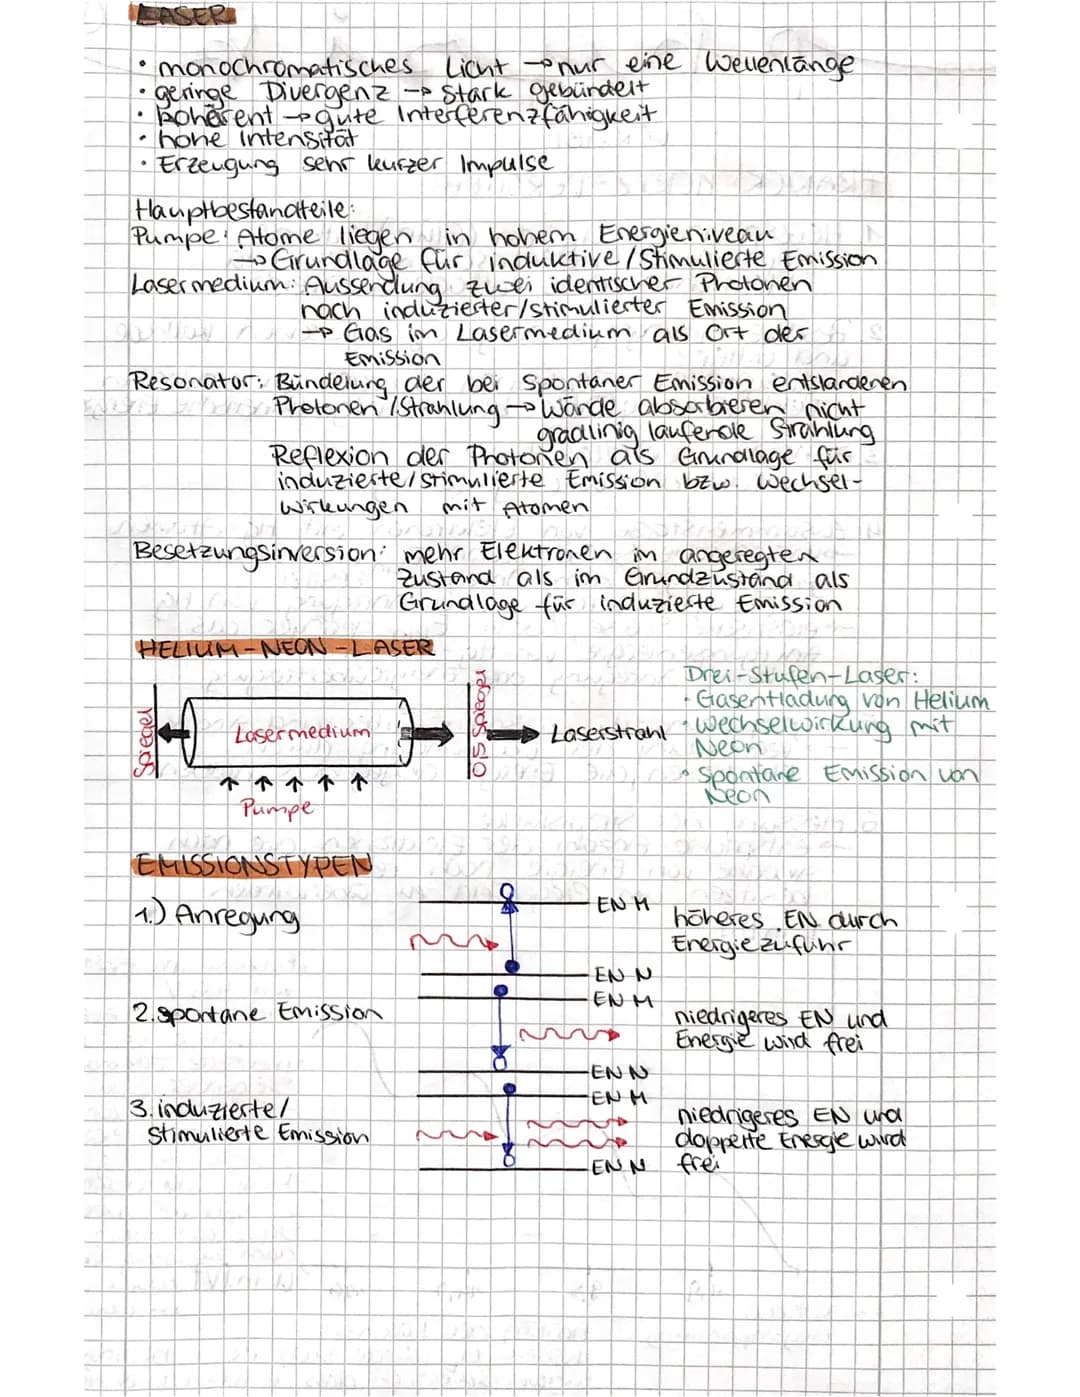 LASER
• monochromatisches Licht → nur eine Wellenlänge
• geringe Divergenz → stark gebündelt
• kohärent → gute Interferenzfähigkeit
• hohe Intensität
• Erzeugung sehr kurzer Impulse
Hauptbestandteile:
Pumpe: Atome liegen in hohem Energieniveau
→ Grundlage für induktive/Stimulierte Emission
Lasermedium: Aussendung zwei identischer Photonen
nach induzierter/stimulierter Emission
→ Gas im Lasermedium als Ort der
Emission
Resonator: Bündelung der bei spontaner Emission entstandenen
Photonen/Strahlung → Wände absorbieren nicht
gradlinig laufende Strahlung
Reflexion der Photonen als Grundlage für
induzierte/stimulierte Emission bzw. Wechsel-
wirkungen mit Atomen
Besetzungsinversion: mehr Elektronen im angeregten
Zustand als im Grundzustand als
Grundlage für induzierte Emission
HELIUM-NEON-LASER
Drei-Stufen-Laser:
• Gasentladung von Helium
• Wechselwirkung mit
Neon
• Spontane Emission von
Neon
Spiegel
Lasermedium
Spiegel
Laserstrahl
Pumpe
EMISSIONSTYPEN
1.) Anregung
EN M
EN N
höheres EN durch
Energiezufuhr
2. spontane Emission
EN M
EN N
niedrigeres EN und
Energie wird frei
3. induzierte/
Stimulierte Emission
EN M
EN N
niedrigeres EN und
doppelte Energie wird
frei